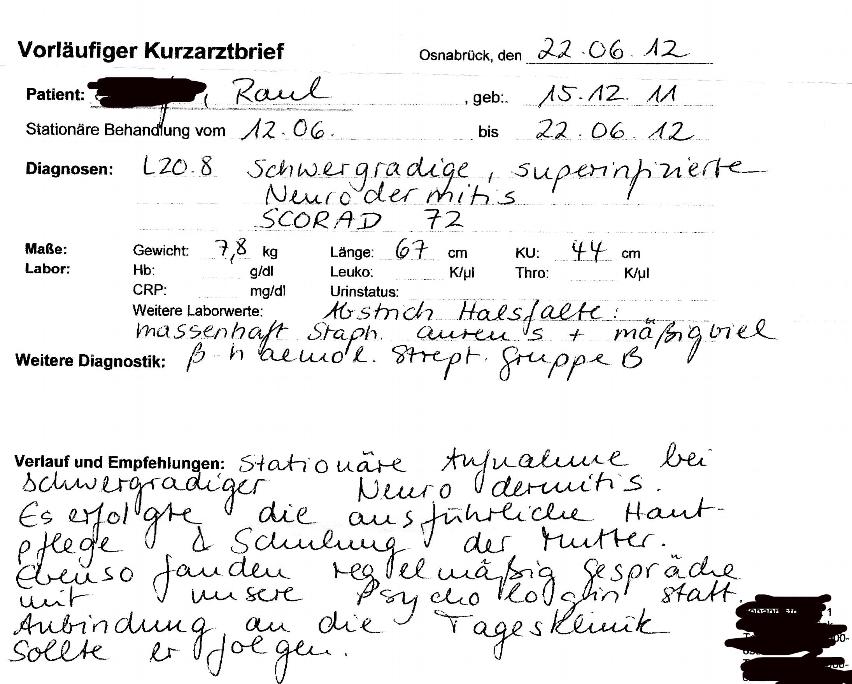 Vorläufiger Kurzarztbrief Osnabrück, den 22.06.12
Patient: , Raul , geb:. 15.12.11
Stationäre Behandlung vom 12.06. bis 22.06.12
Diagnosen: L20.8 Schwergradige, superinfizierte
Neurodermitis
SCORAD 72
Maße: Gewicht: 7,8 kg Länge: 67 cm KU: 44 cm
Labor: Hb: g/dl Leuko: K/µl Thro: K/µl
CRP: mg/dl Urinstatus:
Weitere Laborwerte: Abstrich Halsfalte:
massenhaft Staph. aureus + mäßig viel
Weitere Diagnostik: β-haemol. Strept. Gruppe B
Verlauf und Empfehlungen: Stationäre Aufnahme bei
schwergradiger Neurodermitis.
Es erfolgte die ausführliche Haut-
pflege & Schulung der Mutter.
Ebenso fanden regelmäßig Gespräche
mit unsere Psychologin statt.
Anbindung an die Tagesklinik
sollte erfolgen.